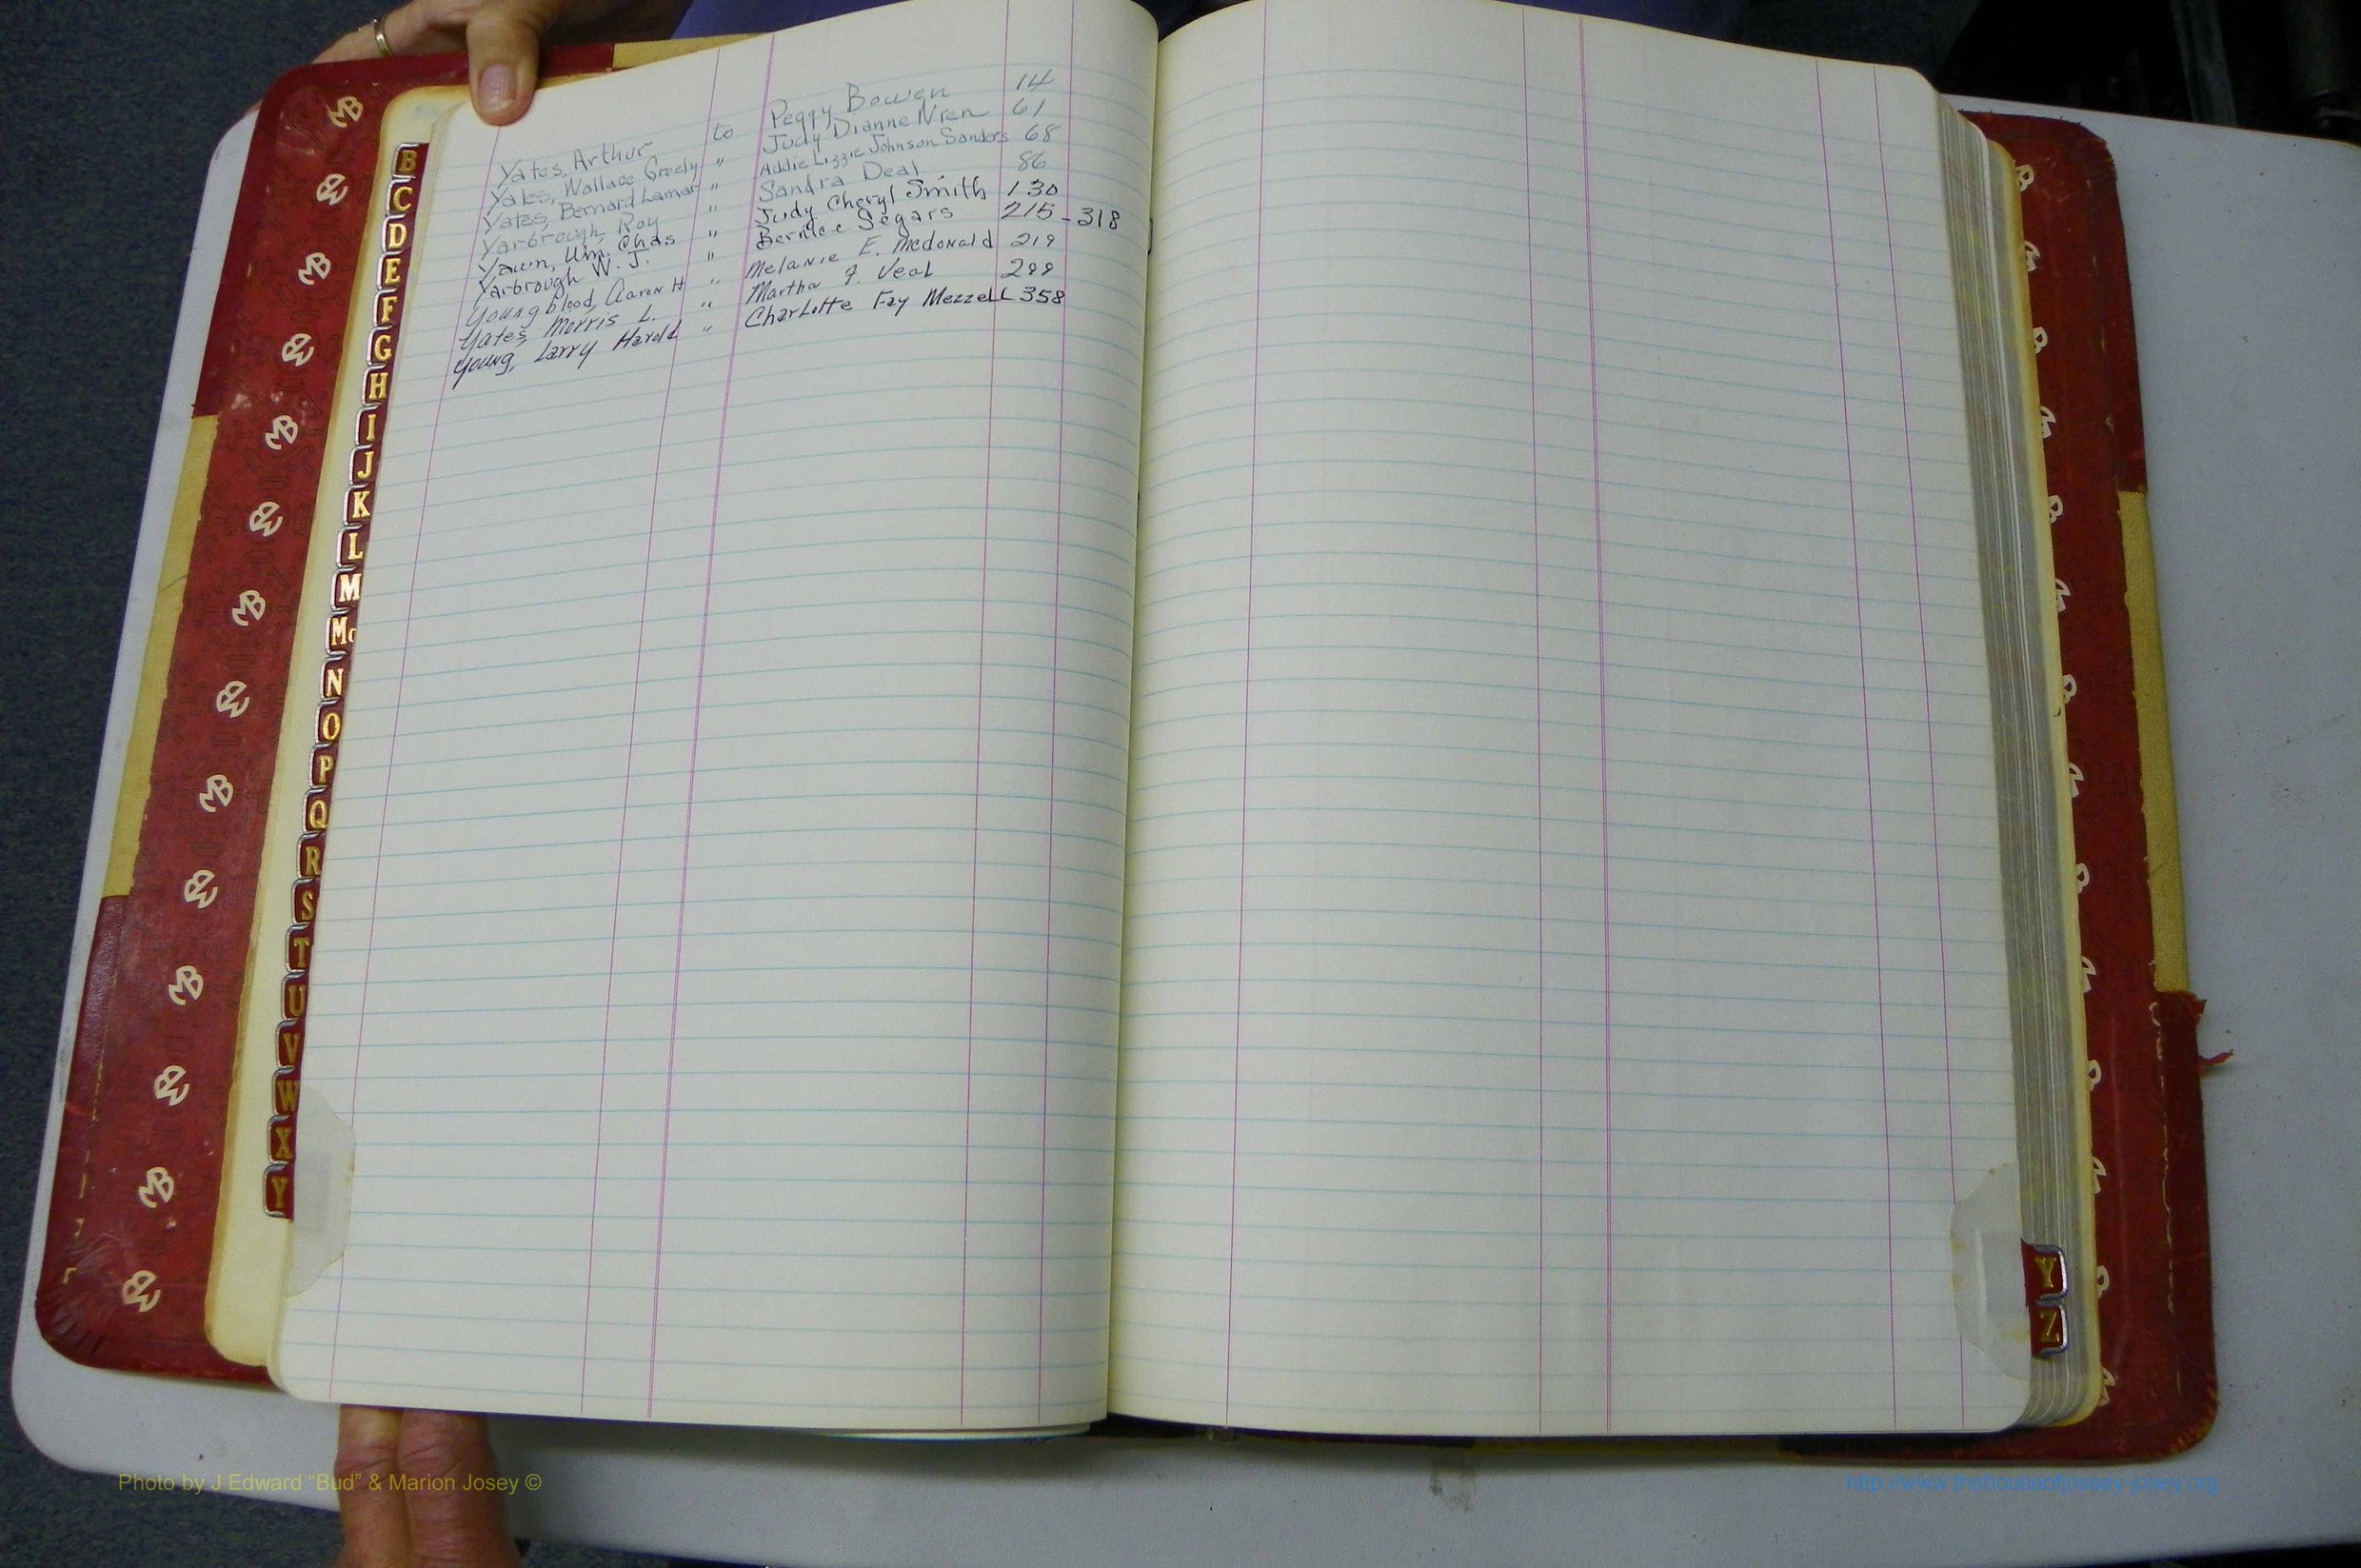 Yates, Arthur to Peggy Bowen 14
Yates, Wallace Greely " Judy Dianne Wren 61
Yates, Bernard Lamar " Addie Lizzie Johnson Sanders 68
Yarbrough, Roy " Sandra Deal 86
Yawn, Wm. Chas " Judy Cheryl Smith 130
Yarbrough W. J. " Bernice Segars 215-318
Youngblood, Aaron H " Melanie E. McDonald 219
Yates, Morris L. " Martha J. Veal 299
Young, Larry Harold " Charlotte Fay Mezzell 358
B
C
D
E
F
G
H
I
J
K
L
M
Mc
N
O
P
Q
R
S
T
U
V
W
X
Y
Y
Z
Photo by J Edward “Bud” & Marion Josey ©